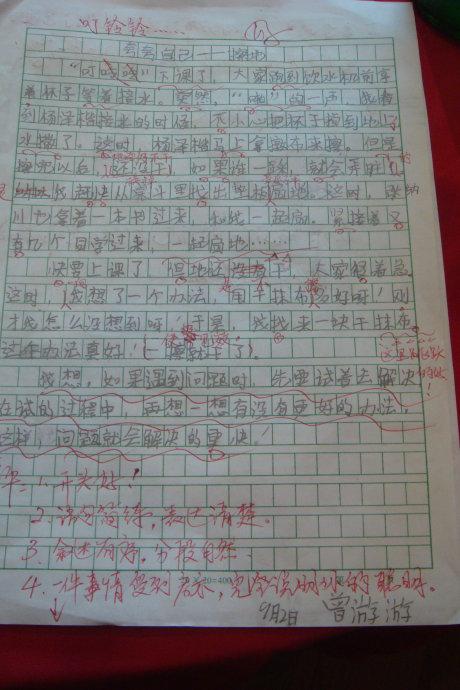 叮铃铃……
夸夸自己——擦地
“叮铃铃”下课了，大家跑到饮水机前拿
着杯子等着接水。突然，“啪”的一声，我看
到杨梁楷接水的时候，不小心把杯子摔到地上
水撒了。这时，杨梁楷马上拿拖布来擦。但是
擦完以后，还没干，如果谁一踩，就会弄脏
我赶快从桌斗里找出
川也拿着一本书过来，和我一起扇。紧接着又
有几个同学过来，一起扇地……
快要上课了，但地还没有干，大家很着急
这时，我想了一个办法，用干抹布多好呀！刚
才我怎么没想到呀！于是，我找来一块干抹布
这个办法真好！（一擦就干了）。
我想，如果遇到问题时，先要试着去解决
在试的过程中，再想一想有没有更好的办法，
这样，问题就会解决的更快！
1、开头好！
2、语句简练，表达清楚。
3、叙述有序，分段自然
4、一件事情受到启示，完全说明你的聪明。
20=400
9月2日 曾游游